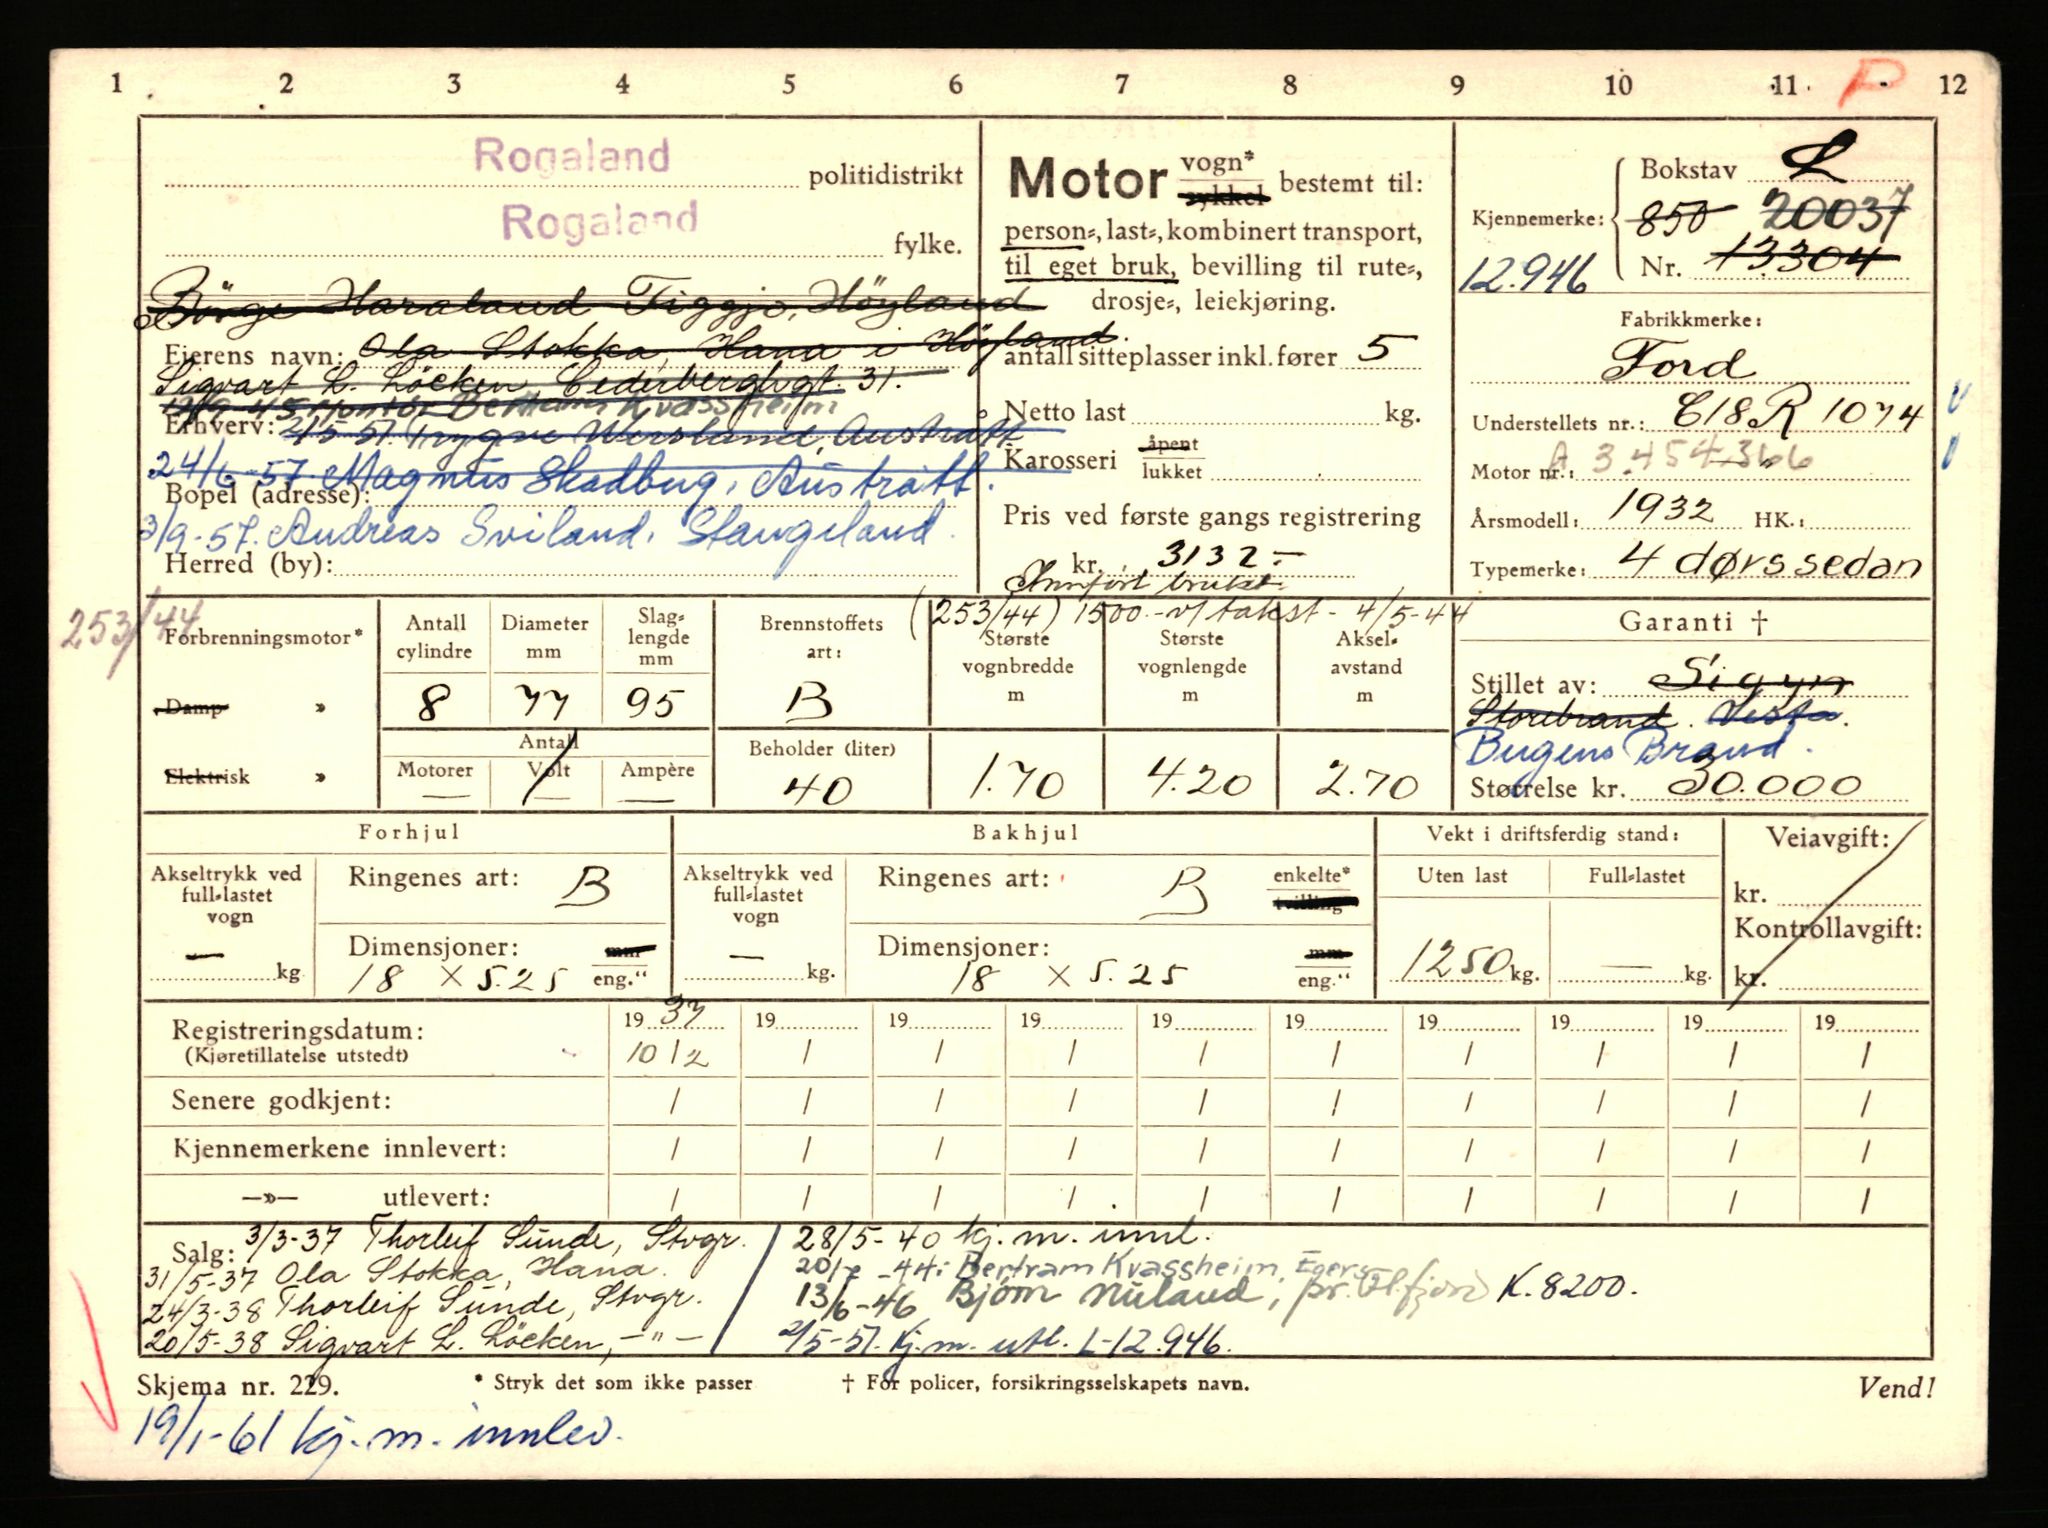 1 2 3 4 5 6 7 8 9 10 11 P 12
Rogaland politidistrikt
Rogaland fylke.
Börge Haraland Figgjo, Höyland
Eierens navn: Ola Stokka, Hana i Höyland.
Sigvart L. Löcken, Cederberghgt. 31.
Montör Bertram Kvassheim
Erhverv: 2/5-57. Trygve Werland, Austrått
24/6-57 Magnus Skadberg, Austrått.
Bopel (adresse):
3/9-57. Andreas Sviland, Stangeland.
Herred (by):
Motor vogn* sykkel bestemt til:
person-, last-, kombinert transport,
til eget bruk, bevilling til rute-,
drosje-, leiekjøring.
antall sitteplasser inkl. fører 5
Netto last kg.
Karosseri åpent lukket
Pris ved første gangs registrering
kr. 3132.-
Innført brukt.
(253/44) 1500.- v/takst - 4/5-44
Bokstav L
Kjennemerke: 850 20037
Nr. 13304
12.946
Fabrikkmerke:
Ford
Understellets nr.: C18R 1074
Motor nr.: A 3.454.366
Årsmodell: 1932 HK.:
Typemerke: 4 dørs sedan
253/44
Forbrenningsmotor*
Damp »
Elektrisk »
Antall cylindre 8
Diameter mm 77
Slaglengde mm 95
Antall
Motorer — Volt — Ampère —
Brennstoffets art: B
Beholder (liter) 40
Største vognbredde m 1.70
Største vognlengde m 4.20
Akselavstand m 2.70
Garanti †
Stillet av: Sigyn
Storebrand. Vesta.
Bergens Brand.
Størrelse kr. 30.000
Forhjul
Akseltrykk ved full-lastet vogn — kg.
Ringenes art: B
Dimensjoner: mm
18 × 5.25 eng."
Bakhjul
Akseltrykk ved full-lastet vogn — kg.
Ringenes art: B enkelte* tvilling
Dimensjoner: mm
18 × 5.25 eng."
Vekt i driftsferdig stand:
Uten last Full-lastet
1250 kg. — kg.
Veiavgift:
kr.
Kontrollavgift:
kr.
Registreringsdatum: 19 37 19 19 19 19 19 19 19 19 19
(Kjøretillatelse utstedt) 10/2 / / / / / / / / /
Senere godkjent: / / / / / / / / / /
Kjennemerkene innlevert: / / / / / / / / / /
—»— utlevert: / / / / / / / / / /
Salg: 3/3-37 Thorleif Sunde, Stvgr.
31/5-37 Ola Stokka, Hana.
24/3-38 Thorleif Sunde, Stvgr.
20/5-38 Sigvart L. Löcken, —"—
28/5-40 kj.m. innl.
20/7-44: Bertram Kvassheim, Egers.
13/6-46 Bjørn Nuland, pr. Fl.fjord K. 8200.
2/5-57. Kj.m. utl. L-12.946.
Skjema nr. 229. * Stryk det som ikke passer † For policer, forsikringsselskapets navn. Vend!
19/1-61 kj.m. innlev.